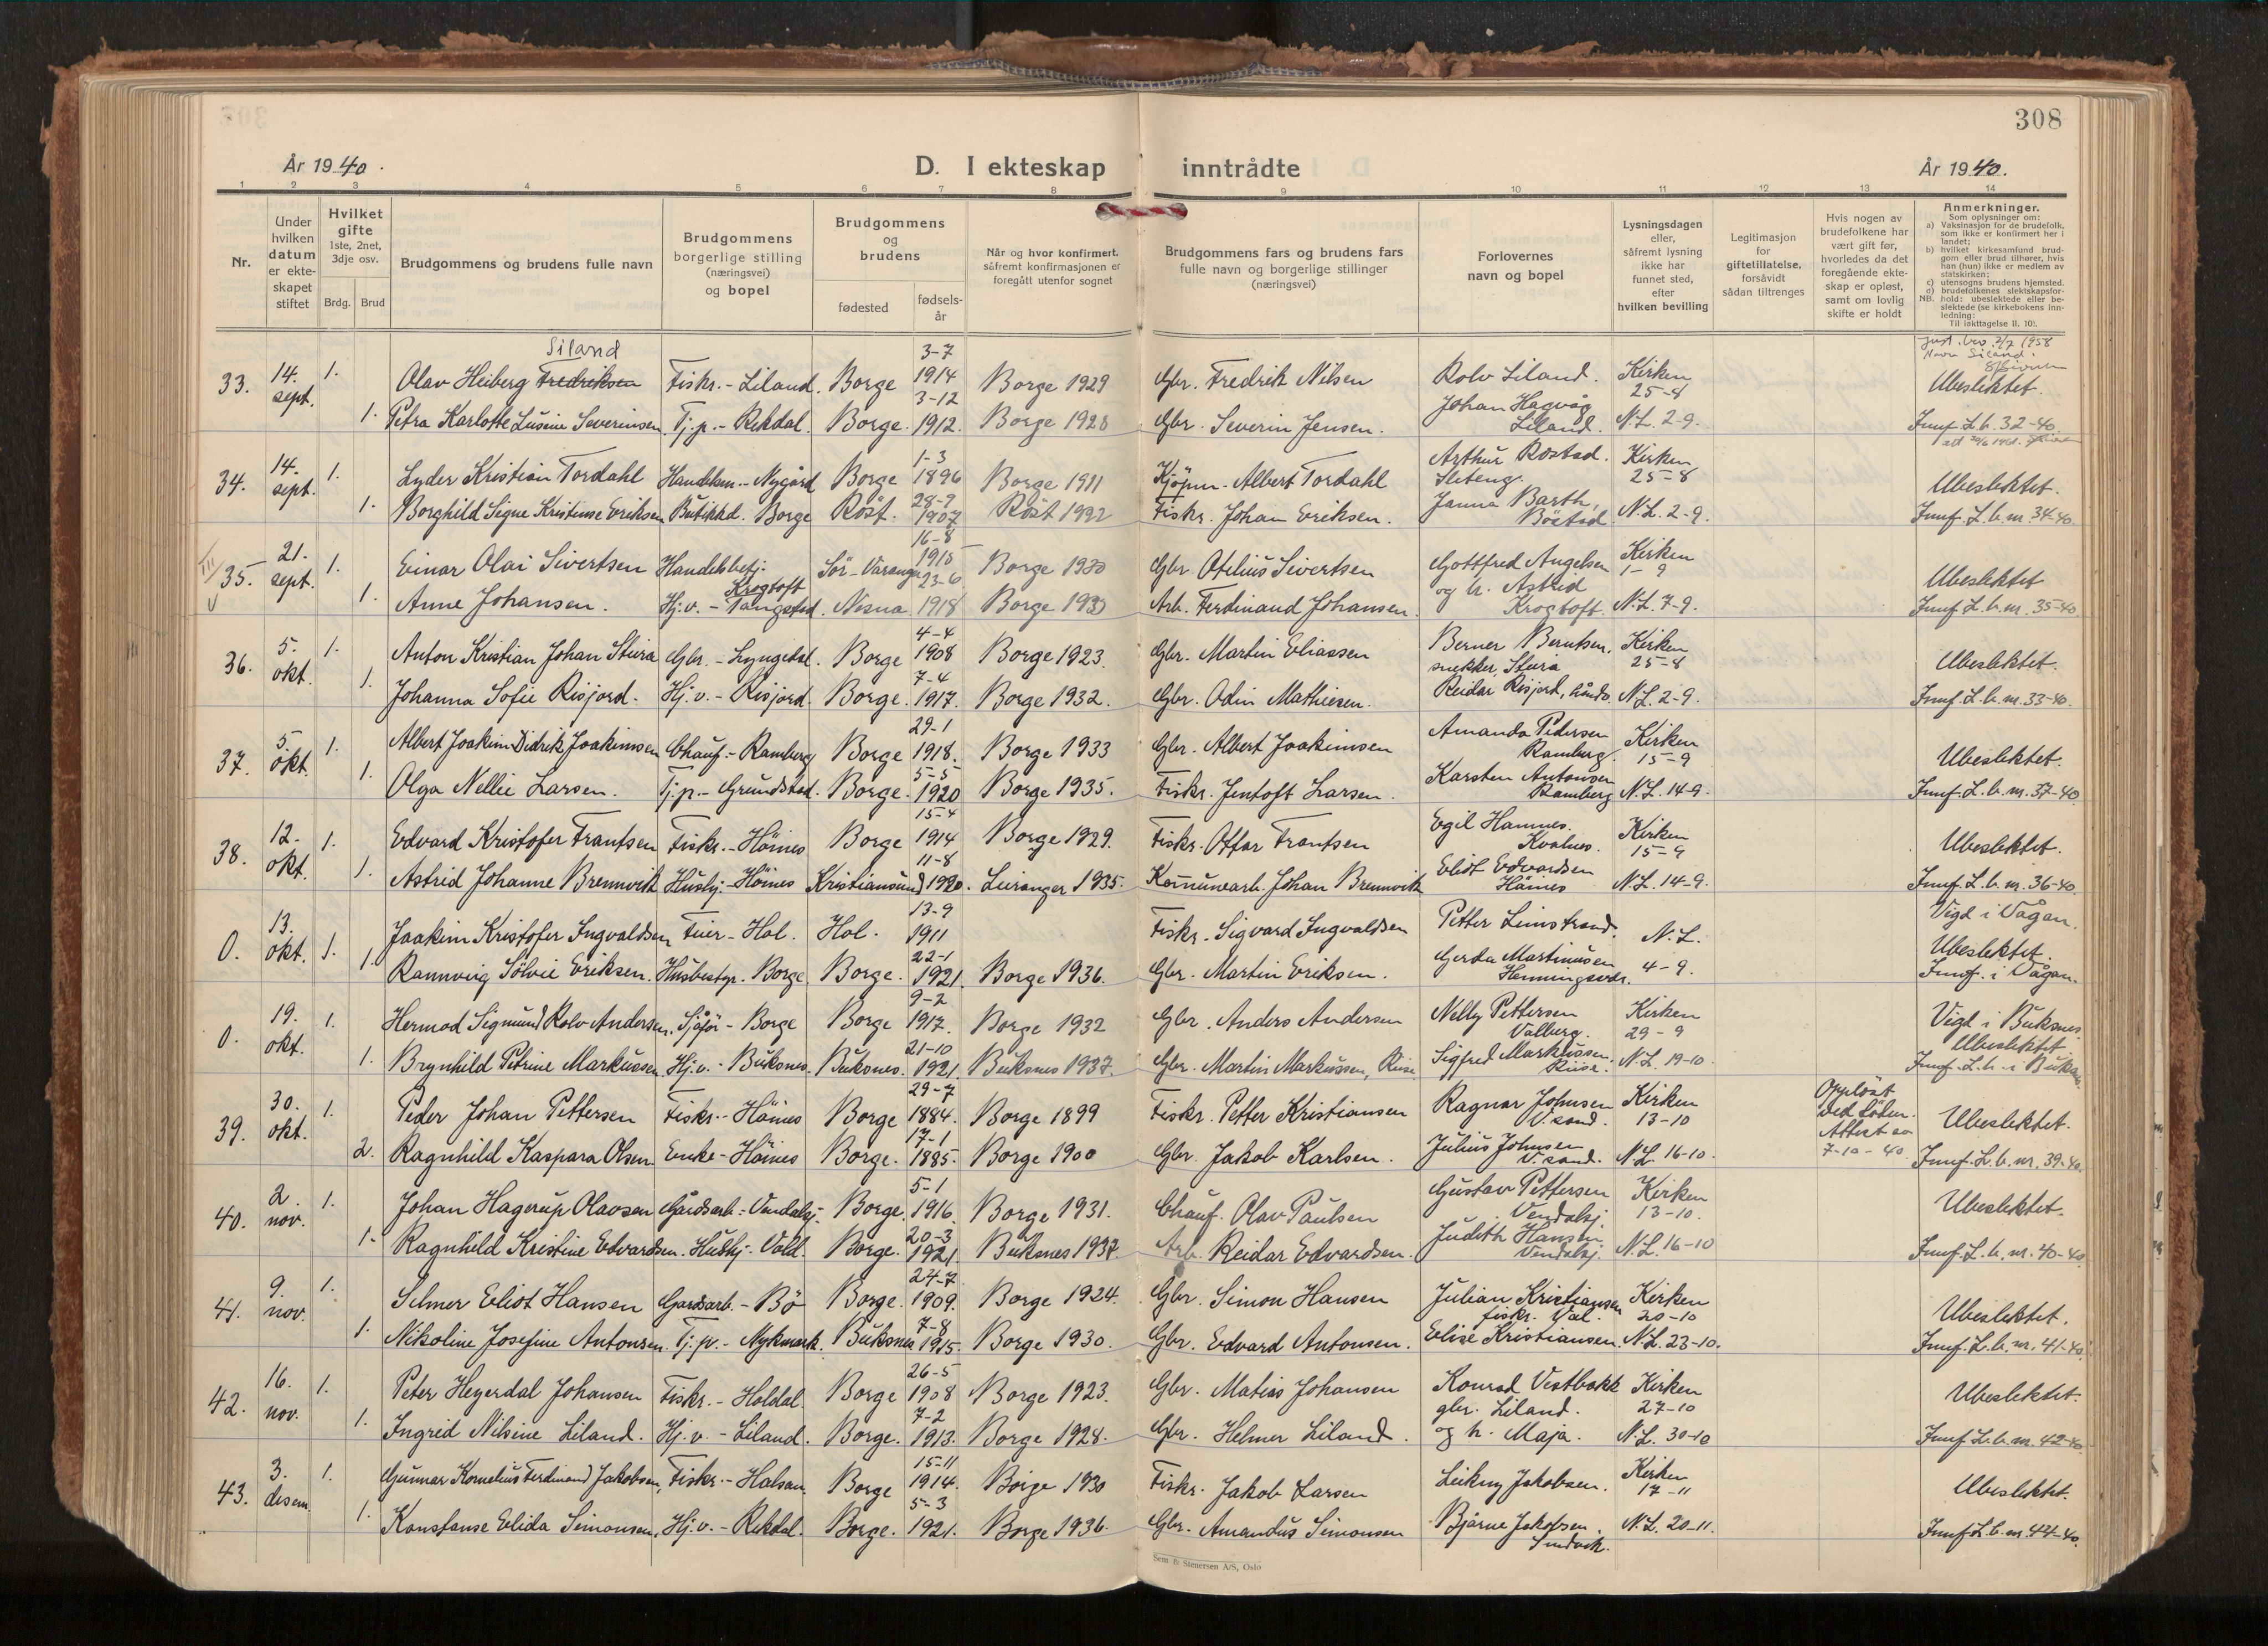 308
År 1940.
D. I ekteskap inntrådte
År 1940.
1 2 3 4 5 6 7 8 9 10 11 12 13 14
Nr.
Under hvilken datum er ekte-skapet stiftet
Hvilket gifte 1ste, 2net, 3dje osv.
Brdg. Brud
Brudgommens og brudens fulle navn
Brudgommens borgerlige stilling (næringsvei) og bopel
Brudgommens og brudens
fødested
fødsels-år
Når og hvor konfirmert, såfremt konfirmasjonen er foregått utenfor sognet
Brudgommens fars og brudens fars fulle navn og borgerlige stillinger (næringsvei)
Forlovernes navn og bopel
Lysningsdagen eller, såfremt lysning ikke har funnet sted, efter hvilken bevilling
Legitimasjon for giftetillatelse, forsåvidt sådan tiltrenges
Hvis nogen av brudefolkene har vært gift før, hvorledes da det foregående ekte-skap er opløst, samt om lovlig skifte er holdt
Anmerkninger.
Som oplysninger om:
a) Vaksinasjon for de brudefolk, som ikke er konfirmert her i landet;
b) hvilket kirkesamfund brud-gom eller brud tilhører, hvis han (hun) ikke er medlem av statskirken;
c) utensogns brudens hjemsted.
d) brudefolkenes slektskapsfor-hold: ubeslektede eller be-slektede (se kirkebokens inn-ledning:
NB. Til iakttagelse II. 10).
33. 14. sept. 1. Olav Heiberg Fredriksen Liland Fiskr. - Liland. Borge 3-7 1914 Borge 1929 Gbr. Fredrik Nilsen Rolv Liland. Kirken 25-8 Ubeslektet.
1. Petra Karlotte Lusine Severinsen. Tj.p. - Rekdal. Borge. 3-12 1912. Borge 1928 Gbr. Severin Jensen. Johan Hagvåg Liland. N.L. 2-9. Innf. L.b. 32-40.
34. 14. sept. 1. Lyder Kristian Tordahl Handelsm. - Nygård Borge 1-3 1896 Borge 1911 Kjöpm. Albert Tordahl Arthur Rostad. Kirken 25-8 Ubeslektet.
1. Borghild Signe Kristense Eriksen Butikkd. Borge Röst. 28-9 1907 Röst 1922 Fiskr. Johan Eriksen. Janna Barth, Böstad N.L. 2-9. Innf. L.b. nr. 34-40.
35. 21. sept. 1. Einar Olai Sivertsen Handelsbetj. Krogtoft Sör-Varanger 16-8 1915 Borge 1930 Gbr. Otelius Sivertsen Gottfred Angelsen Kirken 1-9 Ubeslektet
1. Anne Johansen. Hj.v. - Tangstad. Nesna 23-6 1918 Borge 1933 Arb. Ferdinand Johansen. og h. Astrid Krogtoft. N.L. 7-9. Innf. L.b. nr. 35-40
36. 5. okt. 1. Anton Kristian Johan Steira Gbr. - Lyngedal. Borge 4-4 1908 Borge 1923. Gbr. Martin Eliassen Berner Berntsen, snekker, Steira Kirken 25-8 Ubeslektet.
1. Johanna Sofie Risjord. Hj.v. - Risjord. Borge. 7-4 1917. Borge 1932. Gbr. Odin Mathiesen. Reidar Risjord, N.L. 2-9. Innf. L.b. nr. 33-40.
37. 5. okt. 1. Albert Joakim Didrik Joakimsen Chauf. - Ramberg Borge 29-1 1918. Borge 1933 Gbr. Albert Joakimsen Amanda Pedersen Ramberg. Kirken 15-9 Ubeslektet.
1. Olga Nellie Larsen. Tj.p. - Grundstad. Borge. 5-5 1920 Borge 1935. Fiskr. Jentoft Larsen. Karsten Antonsen Ramberg N.L. 14-9. Innf. L.b. nr. 37-40
38. 12. okt. 1. Edvard Kristofer Frantsen Fiskr. - Höines Borge 15-4 1914 Borge 1929. Fiskr. Ottar Frantsen Egil Hannes. Kvalnes. Kirken 15-9 Ubeslektet.
1. Astrid Johanne Brennvik Hushj. - Höines Kristiansund 11-8 1920. Leiranger 1935. Komunearb. Johan Brennvik Eliot Edvardsen Höines N.L. 14-9. Innf. L.b. nr. 36-40.
0. 13. okt. 1. Joakim Kristofer Ingvaldsen Hol. Hol. 13-9 1911 Fiskr. Sigvard Ingvaldsen Petter Limstrand. N.L. Vigd i Vågan. Ubeslektet.
1. Rannveig Sölvie Eriksen. Husbestyr. Borge Borge. 22-1 1921. Borge 1936. Gbr. Martin Eriksen. Gerda Martinusen Henningsvær. 4-9. Innf. i Vågan.
0. 19. okt. 1. Hermod Sigmund Rolv Andersen. Sjåför - Borge Borge 9-2 1917. Borge 1932 Gbr. Anders Andersen Nelly Pettersen Valberg. Kirken 29-9 Vigd i Buksnes Ubeslektet
1. Brynhild Petrine Markussen Hj.v. - Buksnes. Buksnes. 21-10 1921. Buksnes 1937. Gbr. Martin Markussen, Ruse Sigfred Markussen. Ruse. N.L. 19-10. Innf. L.b. i Buksn.
39. 30. okt. 1. Peder Johan Pettersen Fiskr. - Höines Borge 29-7 1884. Borge 1899 Fiskr. Petter Kristiansen Ragnar Johnsen V.sand. Kirken 13-10 Opplöst ved döden. Attest av 7-10-40. Ubeslektet.
2. Ragnhild Kaspara Olsen. Enke - Höines Borge. 17-1 1885. Borge 1900 Gbr. Jakob Karlsen. Julius Johnsen V.sand. N.L. 16-10. Innf. L.b. nr. 39-40.
40. 2. nov. 1. Johan Hagerup Olavsen Gårdsarb. - Vendalsj. Borge. 5-1 1916. Borge 1931. Chauf. Olav Paulsen Gustav Pettersen Vendalsj. Kirken 13-10. Ubeslektet.
1. Ragnhild Kristine Edvardsen. Hushj. Vold. Borge. 20-3 1921. Buksnes 1937. Arb. Reidar Edvardsen. Judith Hansen, Vendalsj. N.L. 16-10 Innf. L.b. nr. 40-40
41. 9. nov. 1. Selmer Eliot Hansen Gardsarb. - Bö Borge. 24-7 1909. Borge 1924. Gbr. Simon Hansen Julian Kristiansen fiskr. Kirken 20-10 Ubeslektet.
1. Nikoline Josefine Antonsen. Tj.p. - Mykmark. Buksnes 7-8 1915. Borge 1930. Gbr. Edvard Antonsen. Elise Kristiansen. N.L. 23-10. Innf. L.b. nr. 41-40.
42. 16. nov. 1. Peter Heyerdal Johansen Fiskr. - Holdal. Borge 26-5 1908 Borge 1923. Gbr. Matias Johansen Konrad Vestbakk gbr. Liland. Kirken 27-10 Ubeslektet.
1. Ingrid Nilsine Liland. Hj.v. - Liland. Borge. 7-2 1913. Borge 1928. Gbr. Helmer Liland. og h. Maja. N.L. 30-10 Innf. L.b. nr. 42-40.
43. 3. desem. 1. Gunnar Kornelius Ferdinand Jakobsen, Fiskr. - Halsan. Borge 15-11 1914. Borge 1930 Fiskr. Jakob Larsen Leikny Jakobsen. Kirken 17-11 Ubeslektet.
1. Konstanse Elida Simonsen. Hj.v. - Rekdal. Borge. 5-3 1921. Borge 1936. Gbr. Amandus Simonsen Bjarne Jakobsen. N.L. 20-11. Innf. L.b. nr. 44-40.
Sem & Stenersen A/S, Oslo